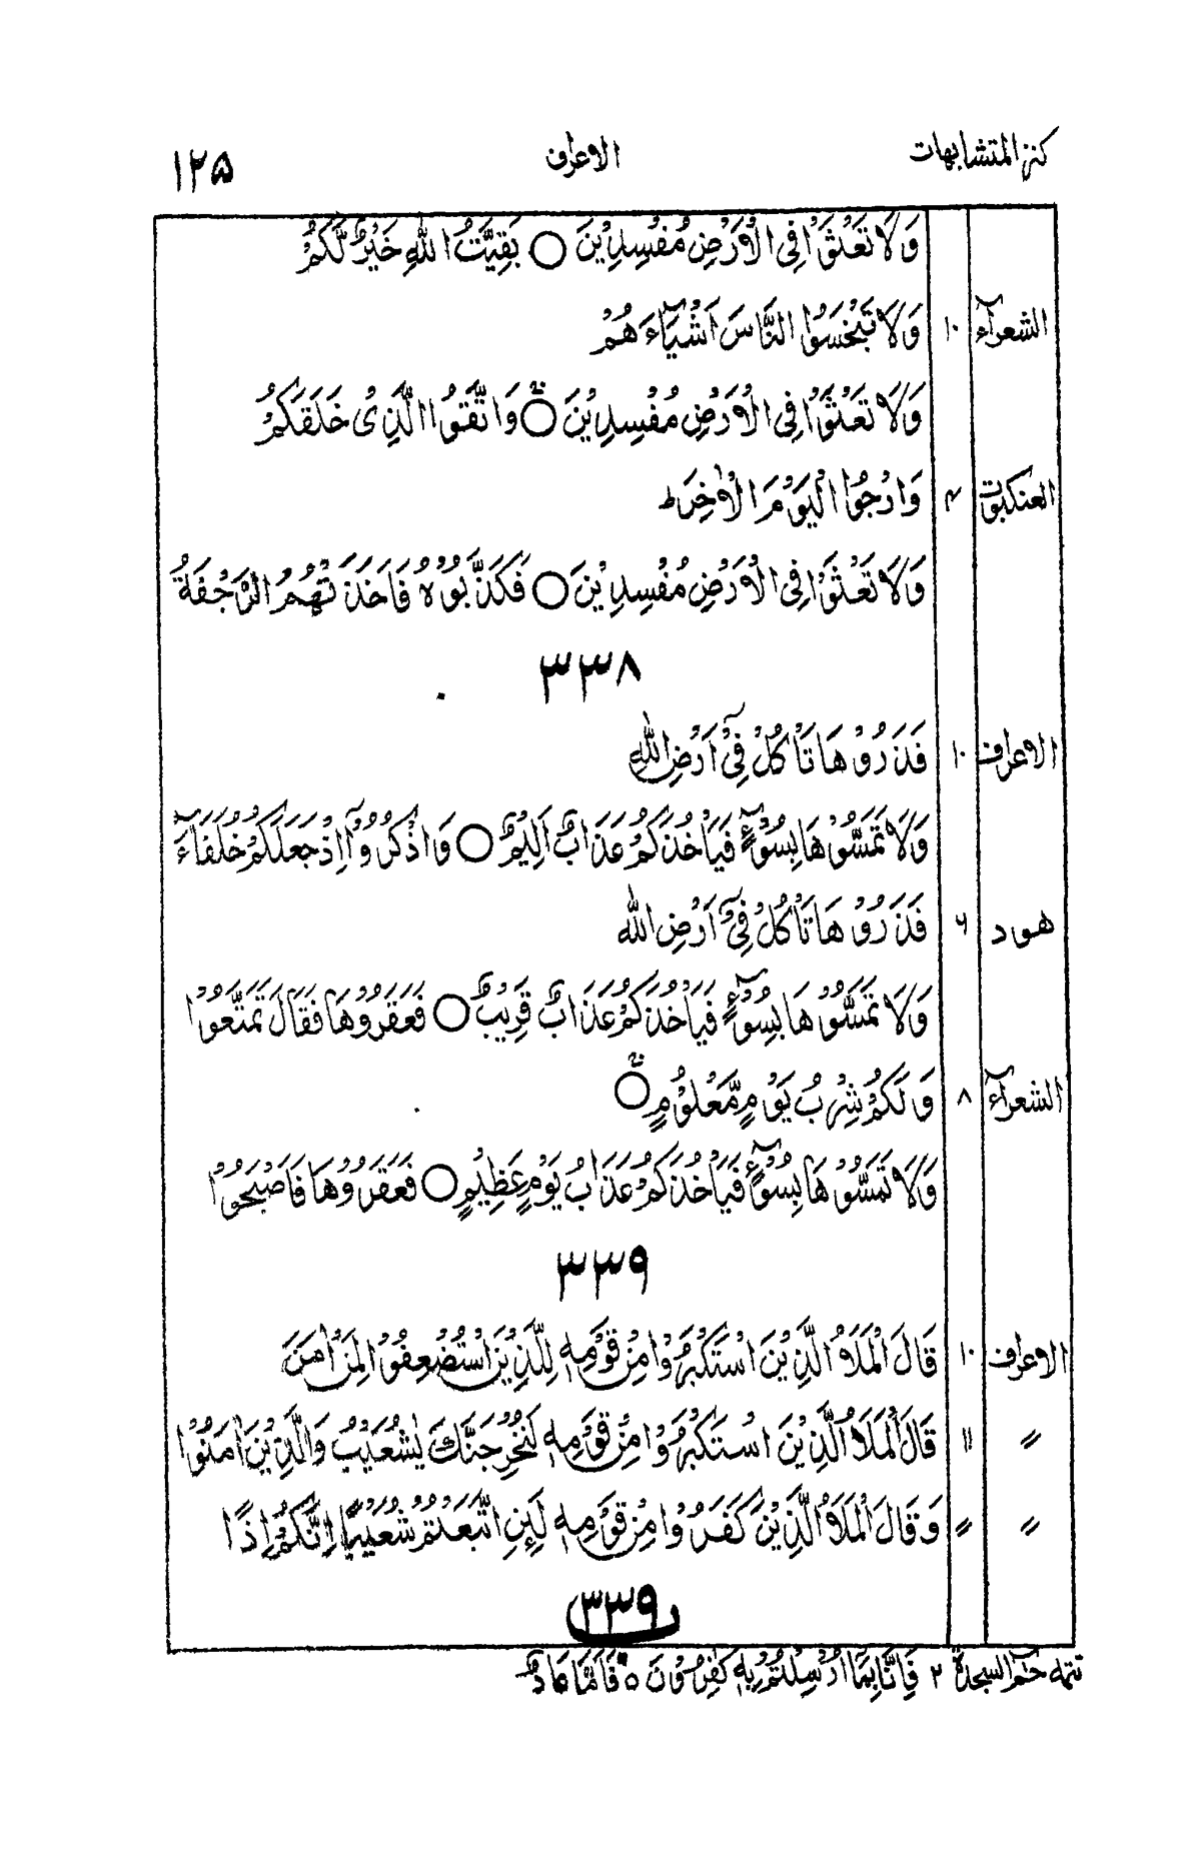 كنز المتشابهات الاعراف ١٢٥
وَلَا تَعْثَوْا فِى الْاَرْضِ مُفْسِدِيْنَ ○ بَقِيَّتُ اللّٰهِ خَيْرٌ لَّكُمْ
الشعرآء ١٠ وَلَا تَبْخَسُوا النَّاسَ اَشْيَآءَهُمْ
وَلَا تَعْثَوْا فِى الْاَرْضِ مُفْسِدِيْنَ ○ وَاتَّقُوا الَّذِىْ خَلَقَكُمْ
العنكبوت ٤ وَارْجُوا الْيَوْمَ الْاٰخِرَ ط
وَلَا تَعْثَوْا فِى الْاَرْضِ مُفْسِدِيْنَ ○ فَكَذَّبُوْهُ فَاَخَذَتْهُمُ الرَّجْفَةُ
٣٣٨
الاعراف ١٠ فَذَرُوْهَا تَاْكُلْ فِىْٓ اَرْضِ اللّٰهِ
وَلَا تَمَسُّوْهَا بِسُوْٓءٍ فَيَاْخُذَكُمْ عَذَابٌ اَلِيْمٌ ○ وَاذْكُرُوْٓا اِذْ جَعَلَكُمْ خُلَفَآءَ
هود ٦ فَذَرُوْهَا تَاْكُلْ فِىْٓ اَرْضِ اللّٰه
وَلَا تَمَسُّوْهَا بِسُوْٓءٍ فَيَاْخُذَكُمْ عَذَابٌ قَرِيْبٌ ○ فَعَقَرُوْهَا فَقَالَ تَمَتَّعُوْا
الشعرآء ٨ وَلَكُمْ شِرْبُ يَوْمٍ مَّعْلُوْمٍ ○
وَلَا تَمَسُّوْهَا بِسُوْٓءٍ فَيَاْخُذَكُمْ عَذَابُ يَوْمٍ عَظِيْمٍ ○ فَعَقَرُوْهَا فَاَصْبَحُوْا
٣٣٩
الاعراف ١٠ قَالَ الْمَلَاُ الَّذِيْنَ اسْتَكْبَرُوْا مِنْ قَوْمِهٖ لِلَّذِيْنَ اسْتُضْعِفُوْا لِمَنْ اٰمَنَ
〃 ١١ قَالَ الْمَلَاُ الَّذِيْنَ اسْتَكْبَرُوْا مِنْ قَوْمِهٖ لَنُخْرِجَنَّكَ يٰشُعَيْبُ وَالَّذِيْنَ اٰمَنُوْا
〃 〃 وَقَالَ الْمَلَاُ الَّذِيْنَ كَفَرُوْا مِنْ قَوْمِهٖ لَئِنِ اتَّبَعْتُمْ شُعَيْبًا اِنَّكُمْ اِذًا
٣٣٩
تتمه حٰم السجدة ٢ فَاِنَّا بِمَا اُرْسِلْتُمْ بِهٖ كٰفِرُوْنَ ○ فَاَمَّا عَادٌ